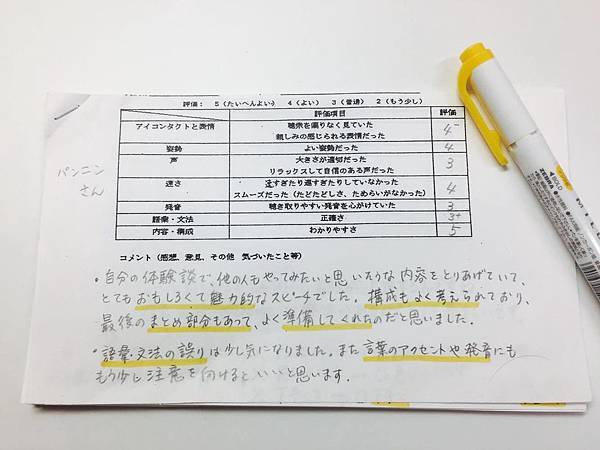 評価： 5（たいへんよい） 4（よい） 3（普通） 2（もう少し）
評価項目 評価
アイコンタクトと表情 聴衆を偏りなく見ていた 4-
親しみの感じられる表情だった
姿勢 よい姿勢だった 4
声 大きさが適切だった 3
リラックスして自信のある声だった
速さ 速すぎたり遅すぎたりしていなかった 4
スムーズだった（たどたどしさ、ためらいがなかった）
発音 聴き取りやすい発音を心がけていた 3
語彙・文法 正確さ 3+
内容・構成 わかりやすさ 5
パンニン
さん
コメント（感想、意見、その他 気づいたこと等）
・自分の体験談で、他の人もやってみたいと思いそうな内容をとりあげていて、
とてもおもしろくて魅力的なスピーチでした。構成もよく考えられており、
最後のまとめ部分もあって、よく準備してくれたのだと思いました。
・語彙、文法の誤りは少し気になりました。また言葉のアクセントや発音にも
もう少し注意を向けるといいと思います。
ZEBRA